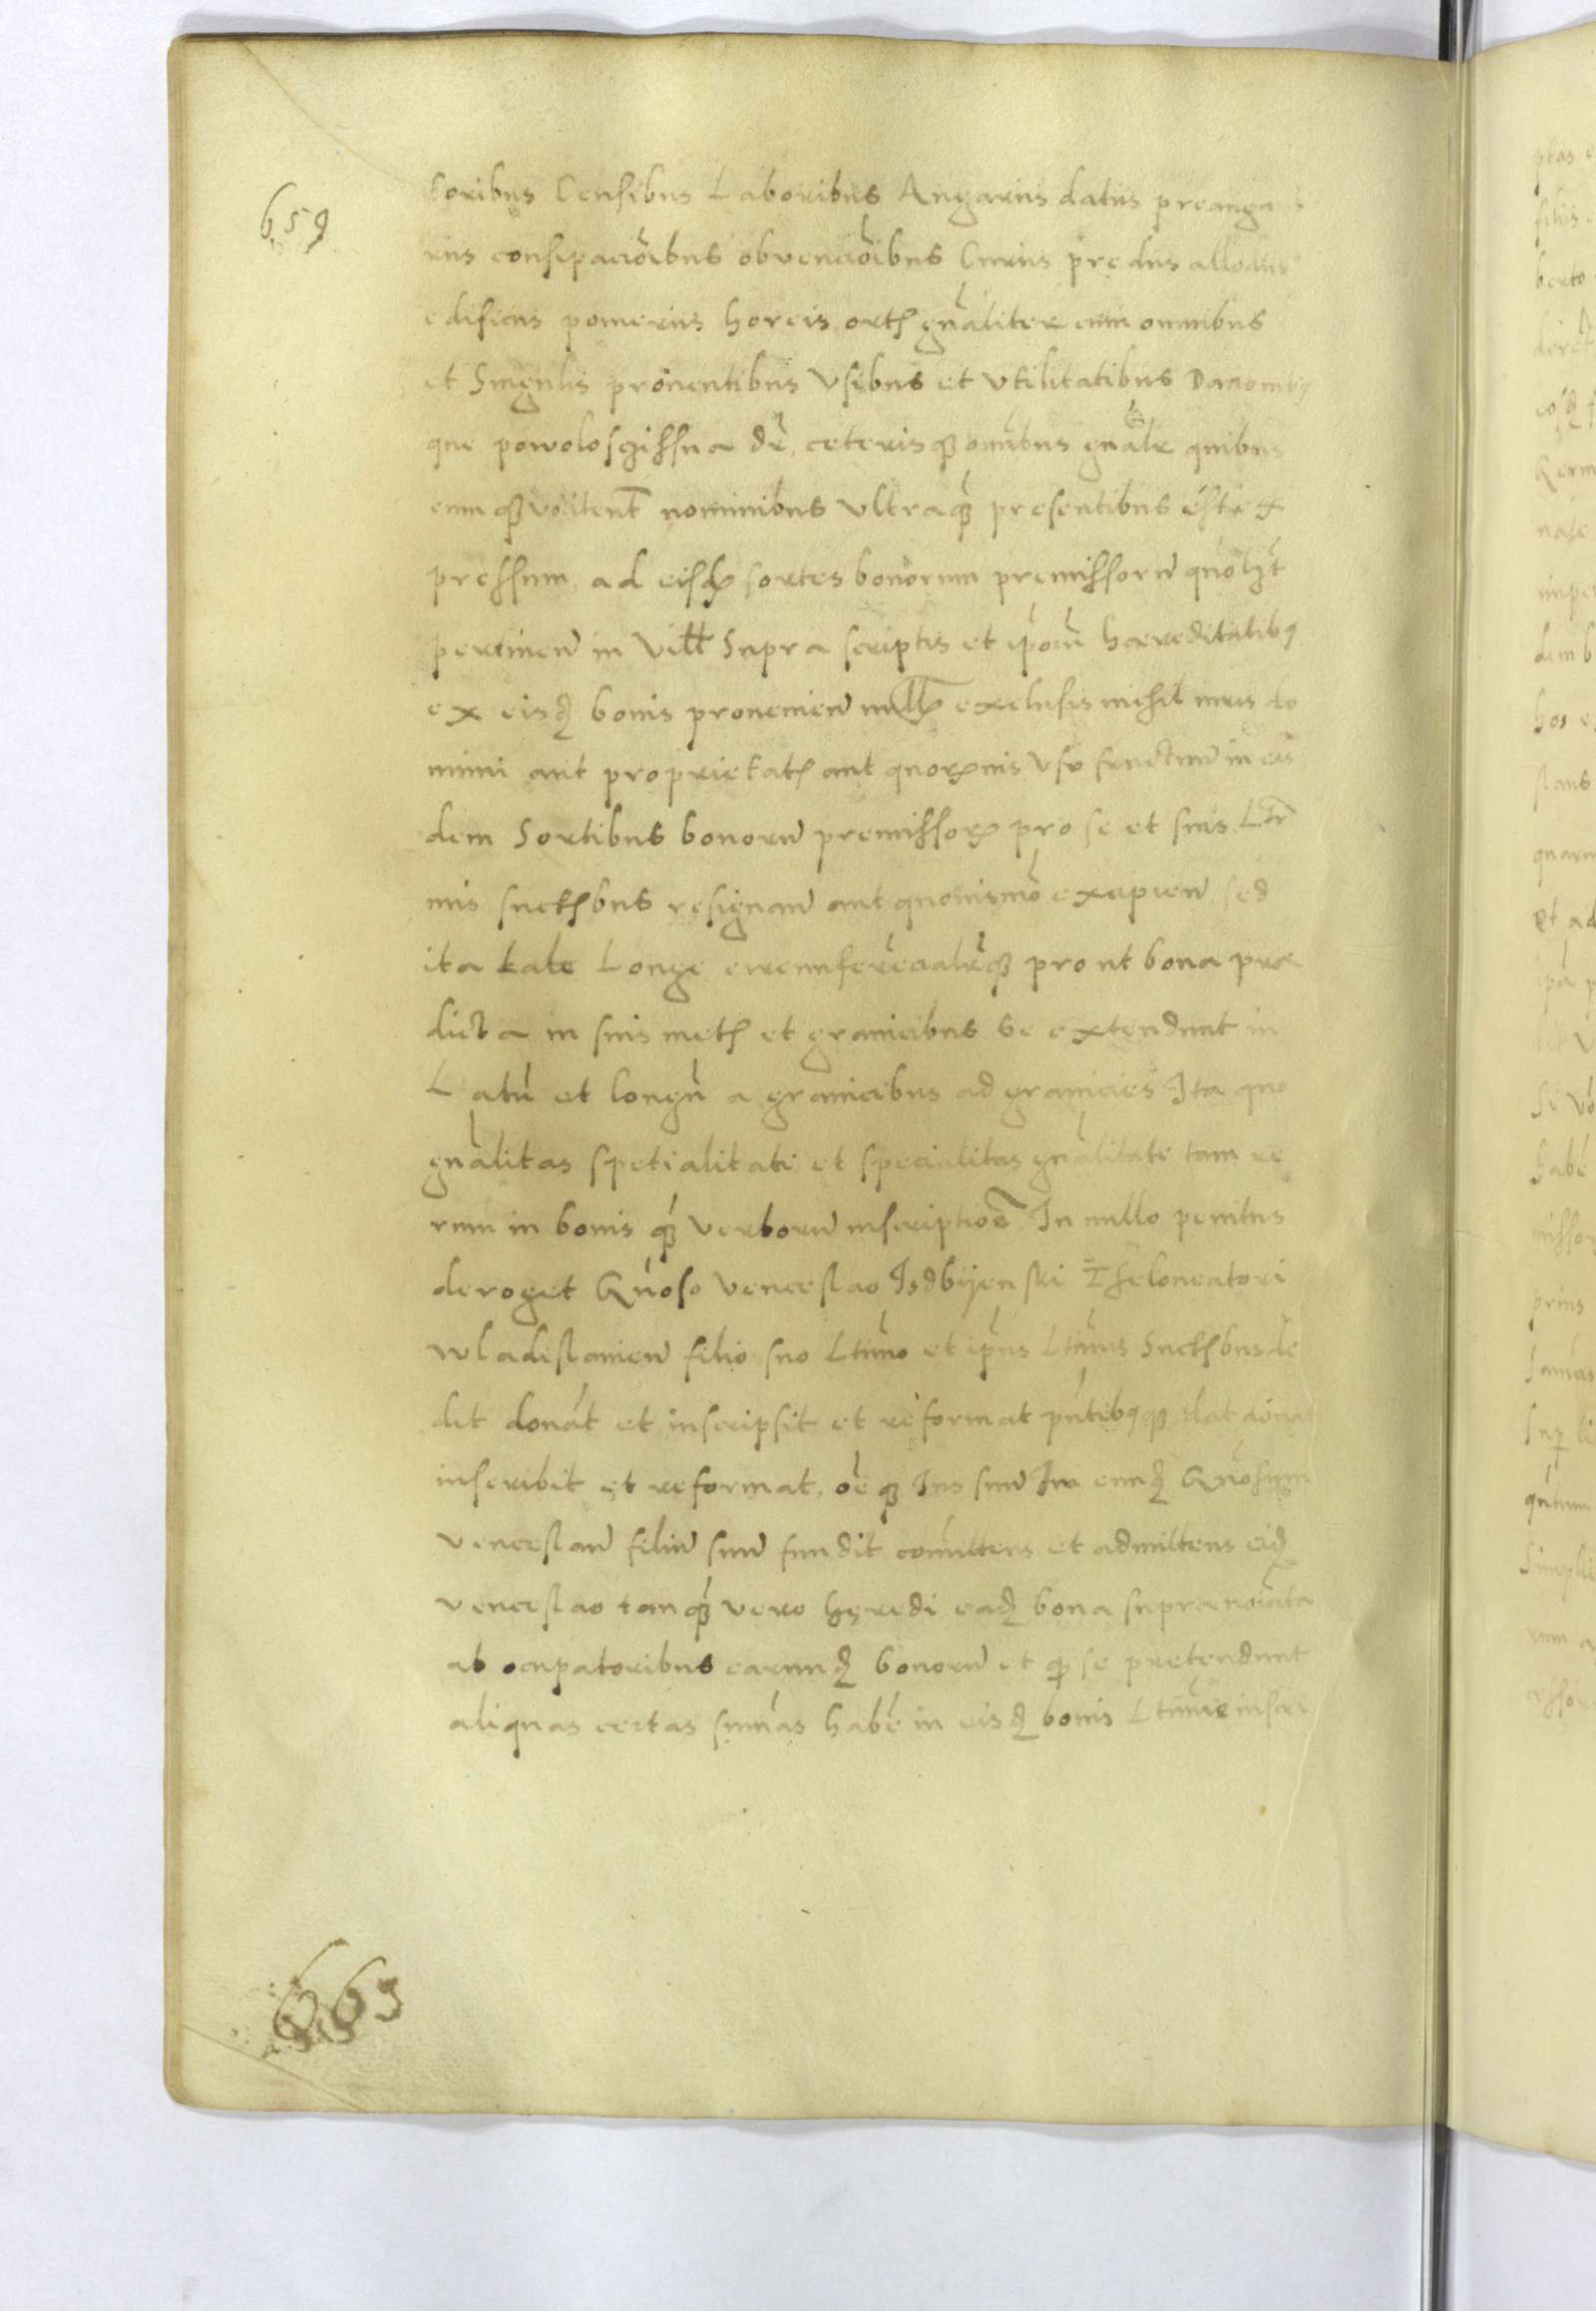 659
toribus Censibus Laboribus Angariis datiis preanga
riis consipaciõibus obvenciõibus Curiis prędiis allodiis
edificiis pomeriis horeis ortis gñaliter cum omnibus
et Singulis prouentibus Vsibus et Vtilitatibus Dacionibus
que powoloscyissna dr̃ ceterisqʒ omĩbus gñalr quibus
cumqʒ vocitent̃ nominibus Vltraqʒ presentibus est ex
pressum ad eisdʒ sortes bonorum premissorũ quolʒt
pertinen̄ in Vill Supra scriptis et ipsoru hæreditatibꝯ
ex eisdʒ bonis prouenien̄ nullʒ exclusis nichil iuris do
minii aut proprietatis aut quorumuis Vsu fructuũ in eis
dem Sortibus bonorũ premissorꝝ pro se et suis Ltĩ
mis succʒbus resignan̄ aut quouismõ excipien̄ sed
ita late Longe circumferẽcialrqʒ prout bona præ
dicta in suis metis et graniciebus se extendunt in
Latũ et longũ a graniciebus ad granicies Ita quo
gñalitas spetialitati et specialitas gñalitati tam re
rum in bonis qʒ verborũ inscriptiõe In nullo penitus
deroget Gñoso Venceslao Isdbijenski Theloneatori
wladislauien̄ filio suo Ltimo et ipius Ltimis Succʒbus de
dit donat et inscripsit et reformat pñtibꝯqʒ dat donat
inscribit et reformat. oẽqʒ Ius suũ In eundʒ Gñosum
Venceslaũ filiũ suũ fundit comittens et admittens eidʒ
Venceslao tanqʒ vero hęredi eadʒ bona suprænoiata
ab ocupatoribus earundʒ bonorũ et qui se pretendunt
aliquas certas sum̃as habẽ in eisdʒ bonis Ltime inscr
663